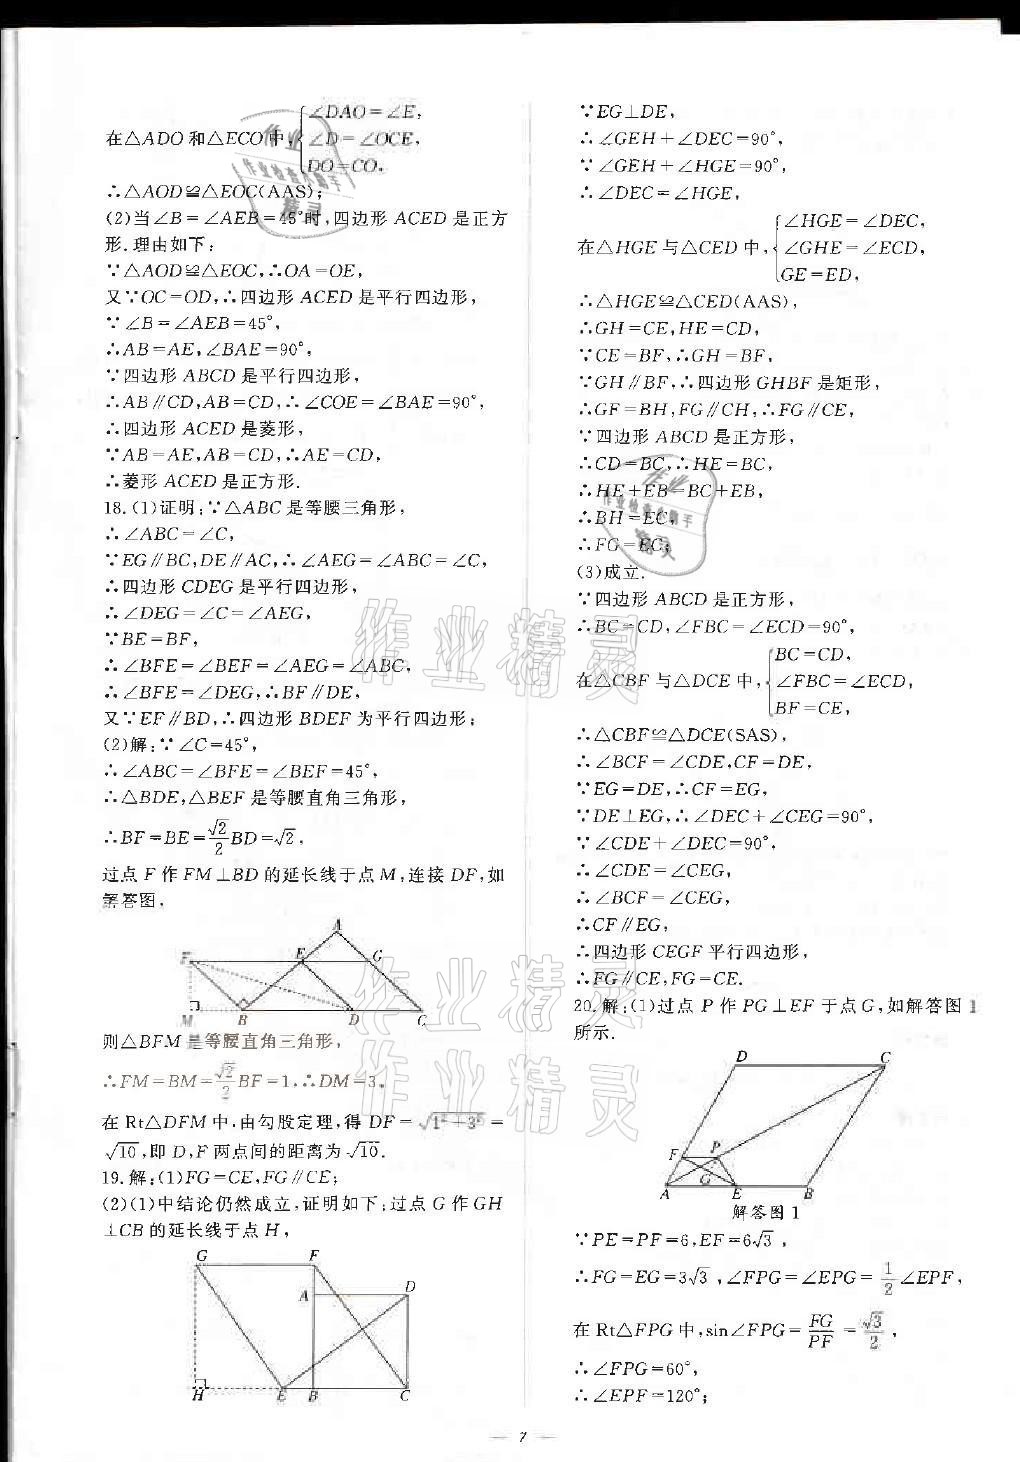 ∠DAO=∠E,
在△ADO和△ECO中, ∠D=∠OCE,
DO=CO,
∴△AOD≌△EOC(AAS);
(2)当∠B=∠AEB=45°时,四边形ACED是正方
形.理由如下:
∵△AOD≌△EOC,∴OA=OE,
又∵OC=OD,∴四边形ACED是平行四边形,
∵∠B=∠AEB=45°,
∴AB=AE,∠BAE=90°,
∵四边形ABCD是平行四边形,
∴AB∥CD,AB=CD,∴∠COE=∠BAE=90°,
∴四边形ACED是菱形,
∵AB=AE,AB=CD,∴AE=CD,
∴菱形ACED是正方形.
18.(1)证明:∵△ABC是等腰三角形,
∴∠ABC=∠C,
∵EG∥BC,DE∥AC,∴∠AEG=∠ABC=∠C,
∴四边形CDEG是平行四边形,
∴∠DEG=∠C=∠AEG,
∵BE=BF,
∴∠BFE=∠BEF=∠AEG=∠ABC,
∴∠BFE=∠DEG,∴BF∥DE,
又∵EF∥BD,∴四边形BDEF为平行四边形;
(2)解:∵∠C=45°,
∴∠ABC=∠BFE=∠BEF=45°,
∴△BDE,△BEF是等腰直角三角形,
∴BF=BE=√2/2BD=√2,
过点F作FM⊥BD的延长线于点M,连接DF,如
解答图,
A
F E G
M B D C
则△BFM是等腰直角三角形,
∴FM=BM=√2/2BF=1,∴DM=3,
在Rt△DFM中,由勾股定理,得DF=√(1²+3²)=
√10,即D,F两点间的距离为√10.
19.解:(1)FG=CE,FG∥CE;
(2)(1)中结论仍然成立,证明如下:过点G作GH
⊥CB的延长线于点H,
G F
A D
H E B C
∵EG⊥DE,
∴∠GEH+∠DEC=90°,
∵∠GEH+∠HGE=90°,
∴∠DEC=∠HGE,
∠HGE=∠DEC,
在△HGE与△CED中, ∠GHE=∠ECD,
GE=ED,
∴△HGE≌△CED(AAS),
∴GH=CE,HE=CD,
∵CE=BF,∴GH=BF,
∵GH∥BF,∴四边形GHBF是矩形,
∴GF=BH,FG∥CH,∴FG∥CE,
∵四边形ABCD是正方形,
∴CD=BC,∴HE=BC,
∴HE+EB=BC+EB,
∴BH=EC,
∴FG=EC;
(3)成立.
∵四边形ABCD是正方形,
∴BC=CD,∠FBC=∠ECD=90°,
BC=CD,
在△CBF与△DCE中, ∠FBC=∠ECD,
BF=CE,
∴△CBF≌△DCE(SAS),
∴∠BCF=∠CDE,CF=DE,
∵EG=DE,∴CF=EG,
∵DE⊥EG,∴∠DEC+∠CEG=90°,
∵∠CDE+∠DEC=90°,
∴∠CDE=∠CEG,
∴∠BCF=∠CEG,
∴CF∥EG,
∴四边形CEGF平行四边形,
∴FG∥CE,FG=CE.
20.解:(1)过点P作PG⊥EF于点G,如解答图1
所示.
D C
F P
G
A E B
解答图1
∵PE=PF=6,EF=6√3,
∴FG=EG=3√3,∠FPG=∠EPG=1/2∠EPF,
在Rt△FPG中,sin∠FPG=FG/PF=√3/2,
∴∠FPG=60°,
∴∠EPF=120°;
7
作业精灵
作业检查小助手
精灵